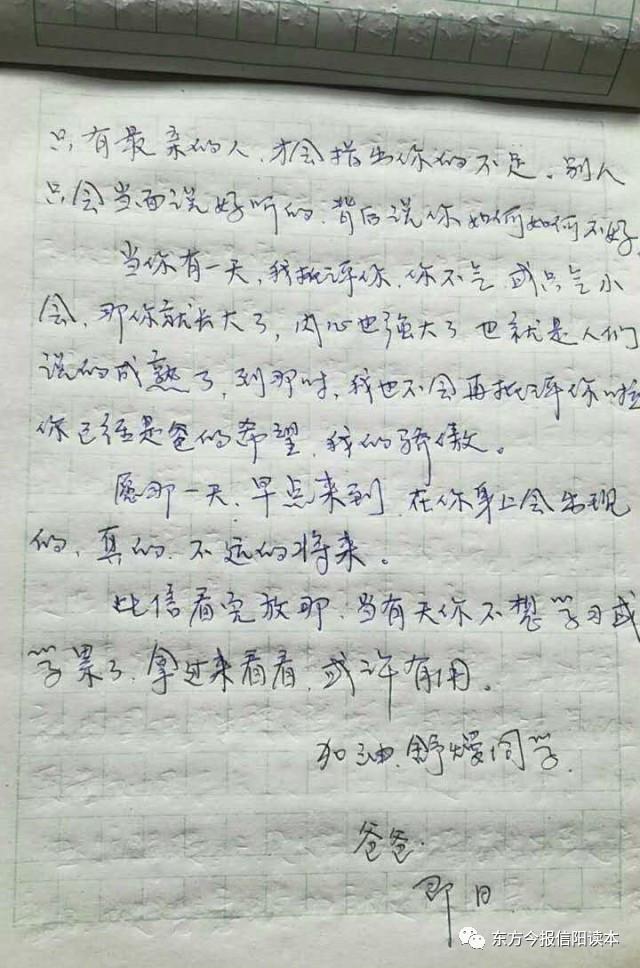 只有最亲的人,才会指出你的不足。别人
只会当面说好听的,背后说你如何如何不好,
当你有一天,我批评你,你不气或只气小
会,那你就长大了,内心也强大了也就是人们
说的成熟了,到那时,我也不会再批评你啦
你已经是爸的希望,我的骄傲。
愿那一天,早点来到,在你身上会出现
的,真的,不远的将来。
此信看完放那,当有天你不想学习或
学累了,拿过来看看,或许有用。
加油,舒嫒同学,
爸爸.
即日
东方今报信阳读本